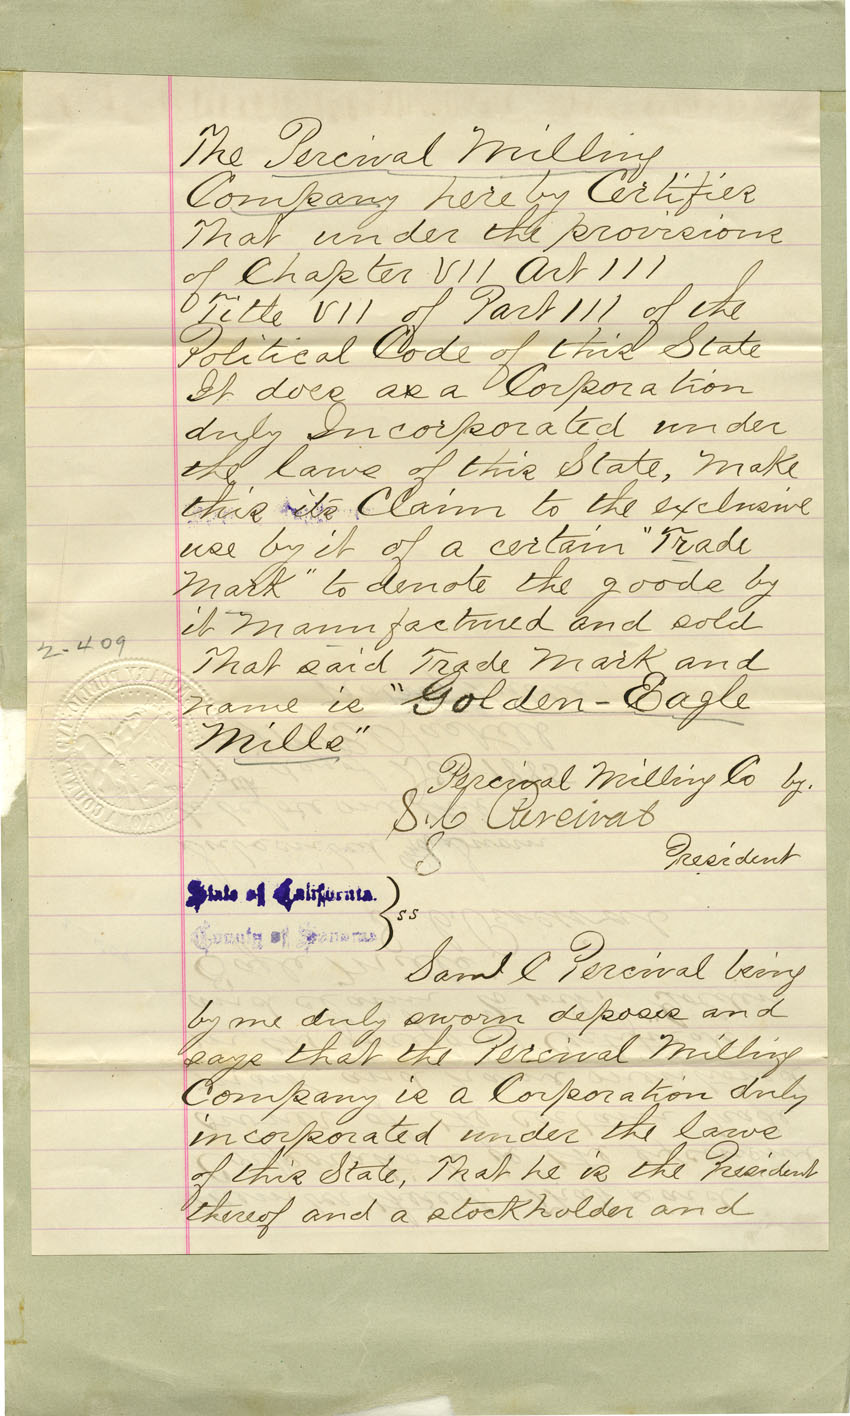 The Percival Milling
Company hereby Certifies
That under the provisions
of Chapter VII Art III
Title VII of Part III of the
Political Code of this State
It does as a Corporation
duly Incorporated under
the laws of this State, make
this its Claim to the exclusive
use by it of a certain "Trade
Mark" to denote the goods by
it Manufactured and sold
That said Trade Mark and
name is "Golden-Eagle
Mills"
2-409
Percival Milling Co by.
S. C Percival
S
President
State of California.
County of Sonoma } ss
Saml C Percival being
by me duly sworn deposes and
says that the Percival Milling
Company is a Corporation duly
incorporated under the laws
of this State, That he is the President
thereof and a stockholder and